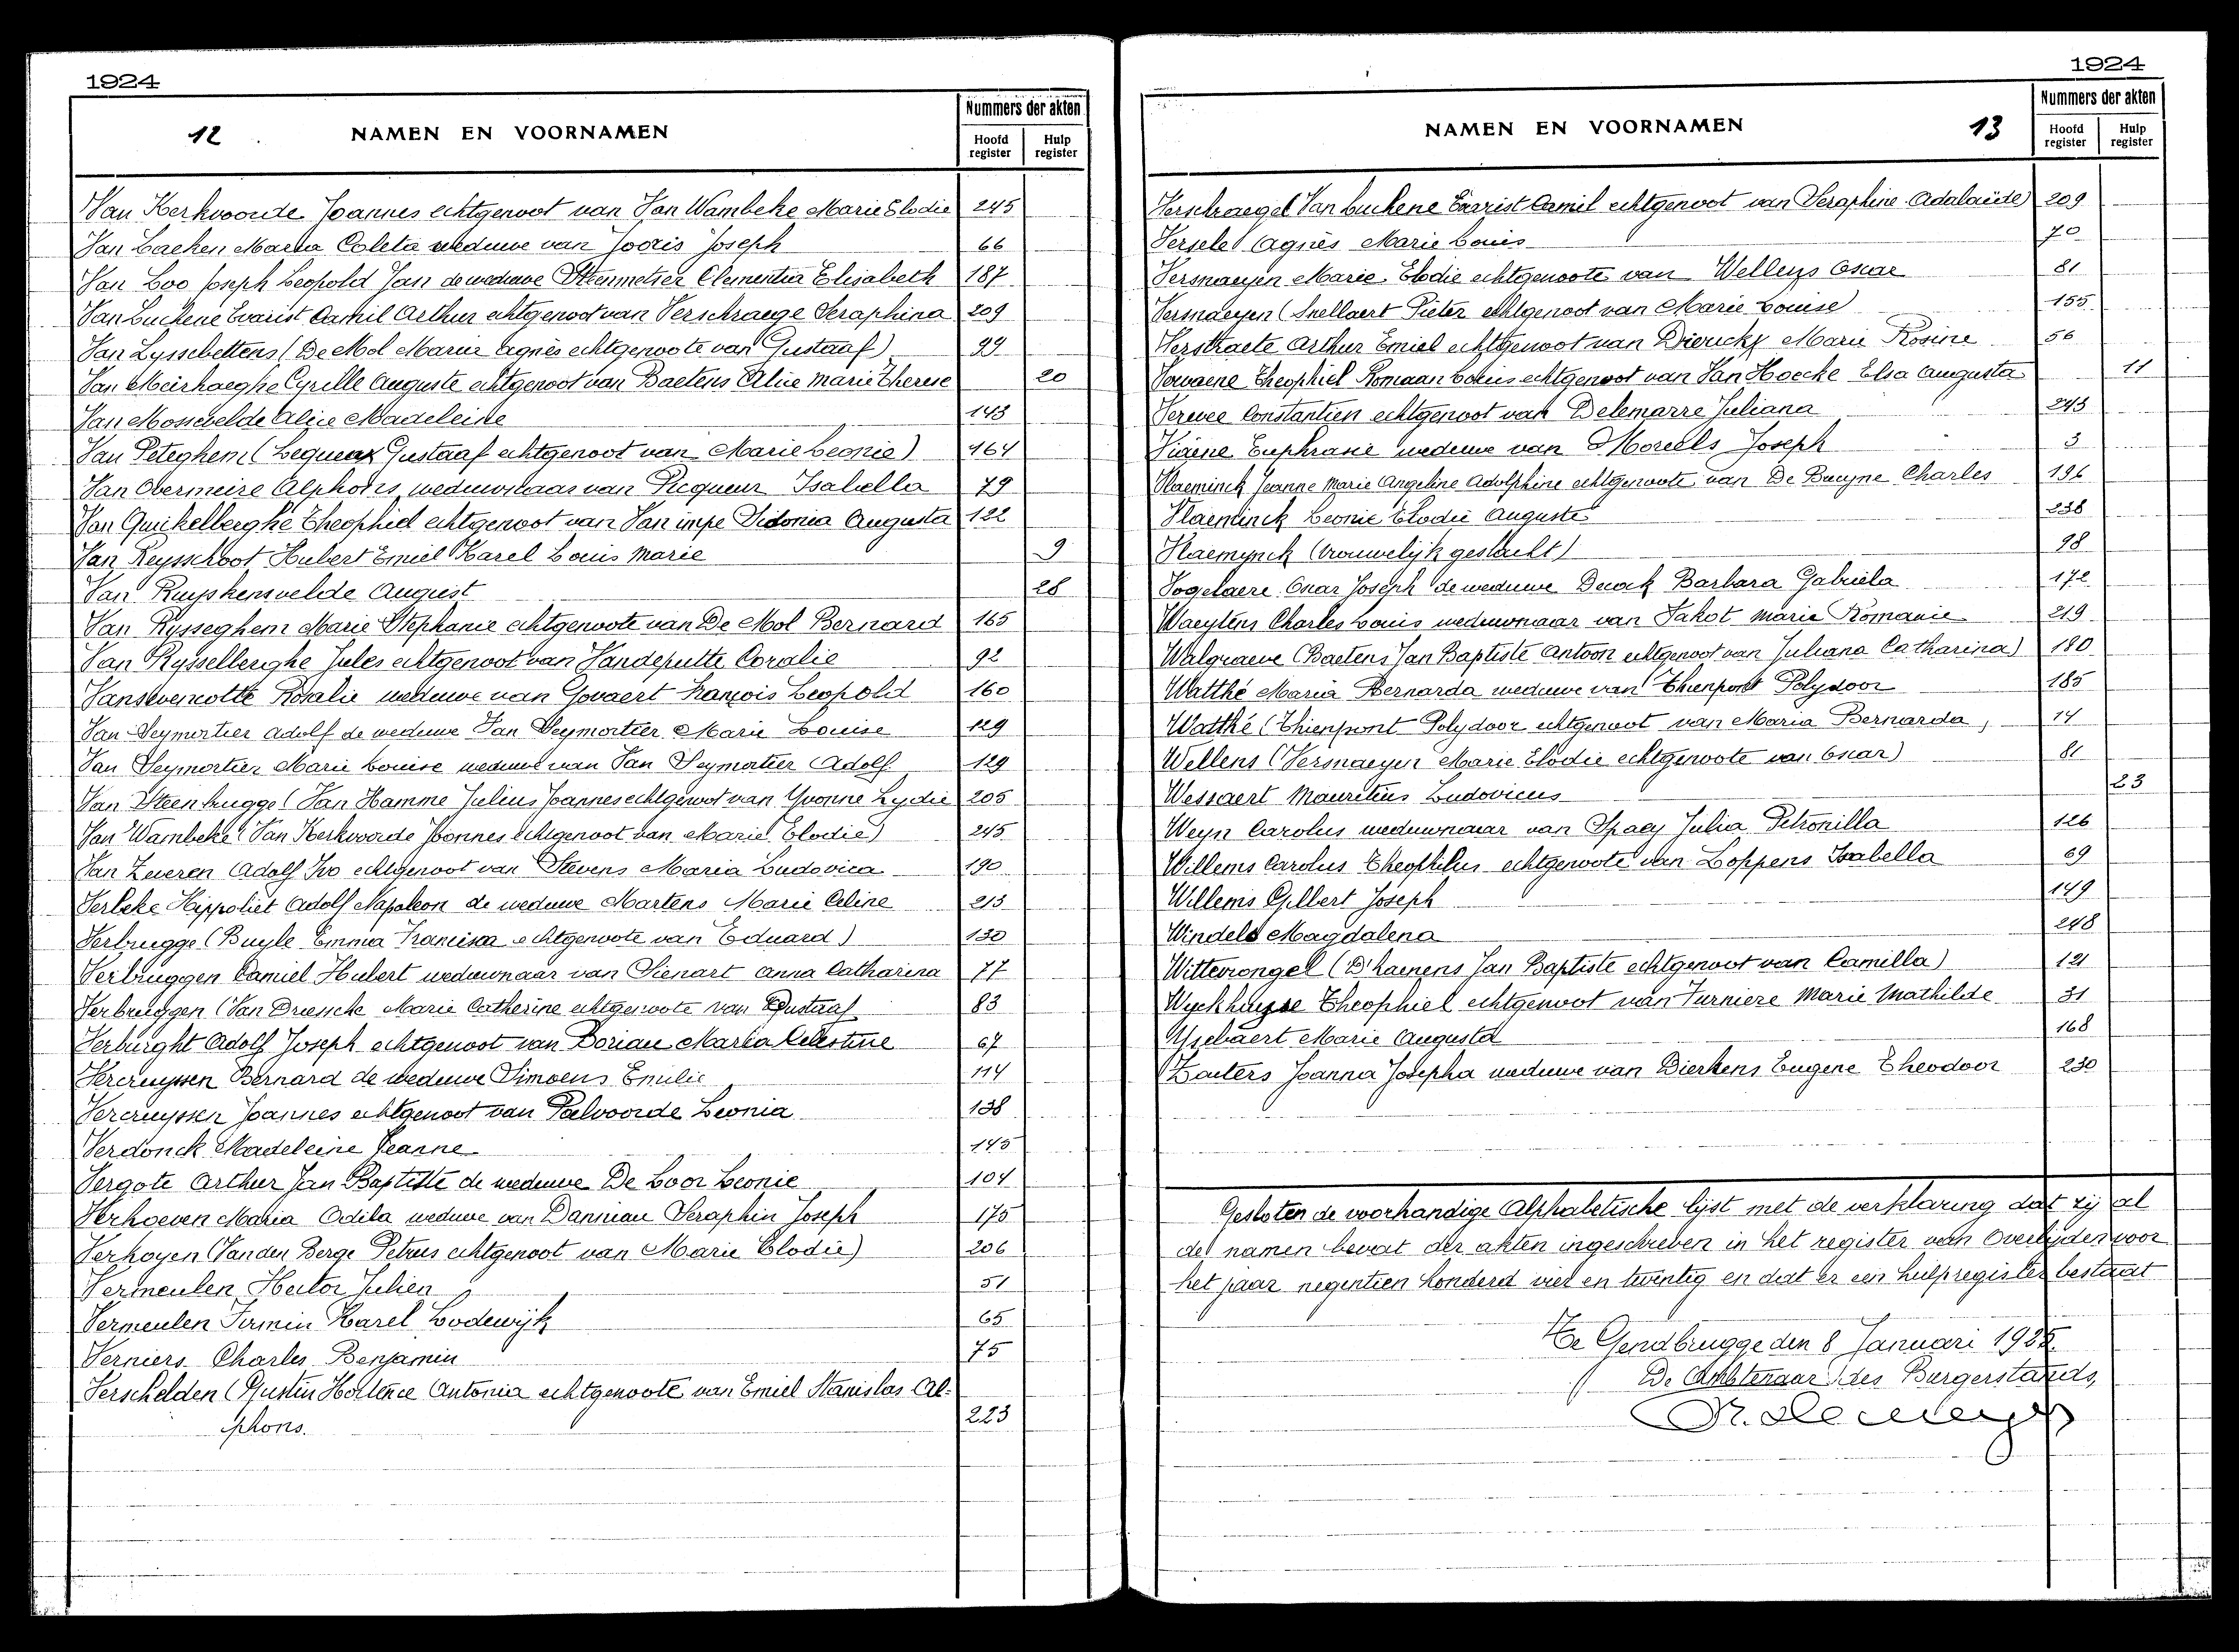 1924
12
NAMEN EN VOORNAMEN
Nummers der akten
Hoofd register
Hulp register
Van Kerkvoorde Joannes echtgenoot van Van Wambeke Marie Elodie 245
Van Laeken Maria Coleta weduwe van Jooris Joseph 66
Van Loo Joseph Leopold Jan de weduwe Steenmetser Clementia Elisabeth 187
Van Luchene Evarist Camil Arthur echtgenoot van Verschraege Seraphina 209
Van Lyssebettens (De Mol Maria Agnès echtgenoote van Gustaaf) 99
Van Meirhaeghe Cyrille Auguste echtgenoot van Baetens Alice Marie Therese 20
Van Mossevelde Alice Madeleine 143
Van Peteghem (Lequeux Gustaaf echtgenoot van Marie Leonie) 164
Van Overmeire Alphons weduwnaar van Picqueur Isabella 79
Van Quickelberghe Theophiel echtgenoot van Van impe Sidonia Augusta 122
Van Reysschoot Hubert Emiel Karel Louis Marie 9
Van Ruyskensvelde August 28
Van Rysseghem Marie Stephanie echtgenoote van De Mol Bernard 165
Van Rysselberghe Jules echtgenoot van Vandeputte Coralie 92
Vansevencotte Rosalie weduwe van Govaert François Leopold 160
Van Seymortier Adolf de weduwe Van Seymortier Marie Louise 129
Van Seymortier Marie Louise weduwe van Van Seymortier Adolf 129
Van Steenbrugge (Van Hamme Julius Joannes echtgenoot van Yvonne Lydie 205
Van Wambeke (Van Kerkvoorde Joannes echtgenoot van Marie Elodie) 245
Van Zeveren Adolf Ivo echtgenoot van Stevens Maria Ludovica 190
Verbeke Hippoliet Adolf Napoleon de weduwe Martens Marie Celine 213
Verbrugge (Buyle Emma Francisca echtgenoote van Eduard) 130
Verbruggen Camiel Hubert weduwnaar van Sienart Anna Catharina 77
Verbruggen (Van Driessche Marie Catherine echtgenoote van Gustaaf 83
Verburght Adolf Joseph echtgenoot van Doriau Maria Celestine 67
Vercruyssen Bernard de weduwe Simoens Emilie 114
Vercruyssen Joannes echtgenoot van Palvoorde Leonia 138
Verdonck Madeleine Jeanne 145
Vergote Arthur Jan Baptiste de weduwe De Loor Leonie 104
Verhoeven Maria Odila weduwe van Danniau Seraphin Joseph 175
Verhoyen (Van den Berge Petrus echtgenoot van Marie Elodie) 206
Vermeulen Hector Julien 51
Vermeulen Firmin Karel Lodewijk 65
Verniers Charles Benjamin 75
Verschelden (Gustin Hortence Antonia echtgenoote van Emiel Stanislas Al-
phons. 223
1924
NAMEN EN VOORNAMEN
13
Nummers der akten
Hoofd register
Hulp register
Verschraege (Van Luchene Evarist Camil echtgenoot van Seraphine Adalaïde) 209
Versele Agnès Marie Louis 70
Versnaeyen Marie Elodie echtgenoote van Wellens Oscar 81
Versnaeyen (Snellaert Pieter echtgenoot van Marie Louise) 155
Verstraete Arthur Emiel echtgenoot van Dierickx Marie Rosine 56
Vervaene Theophiel Romaan Louis echtgenoot van Van Hoecke Elsa Augusta 11
Verwee Constantien echtgenoot van Delemarre Juliana 243
Viaene Euphrasie weduwe van Moreels Joseph 3
Vlaeminck Jeanne Marie Angeline Adolphine echtgenoote van De Bruyne Charles 196
Vlaeminck Leonie Elodie Auguste 238
Vlaemynck (vrouwelijk geslacht) 98
Vogelaere Oscar Joseph de weduwe Derock Barbara Gabriela 172
Waeytens Charles Louis weduwnaar van Sakot Marie Romanie 219
Walgraeve (Baetens Jan Baptiste Antoon echtgenoot van Juliana Catharina) 180
Watthé Maria Bernarda weduwe van Thienpont Polydoor 185
Watthé (Thienpont Polydoor echtgenoot van Maria Bernarda) 14
Wellens (Versnaeyen Marie Elodie echtgenoote van Oscar) 81
Wessaert Mauritius Ludovicus 23
Weyn Carolus weduwnaar van Spaey Julia Petronilla 126
Willems Carolus Theophilus echtgenoote van Loppens Isabella 69
Willems Gilbert Joseph 149
Windels Magdalena 248
Wittevrongel (D'haenens Jan Baptiste echtgenoot van Camilla) 121
Wyckhuyse Theophiel echtgenoot van Turniere Marie Mathilde 31
Ysebaert Marie Augusta 168
Zauters Joanna Josepha weduwe van Dierkens Eugene Theodoor 230
Gesloten de voorhandige Alphabetische lijst met de verklaring dat zij al
de namen bevat der akten ingeschreven in het register van Overlijden voor
het jaar negentien honderd vier en twintig en dat er een hulpregister bestaat
Te Gendbrugge den 8 Januari 1925.
De Ambtenaar des Burgerstands,